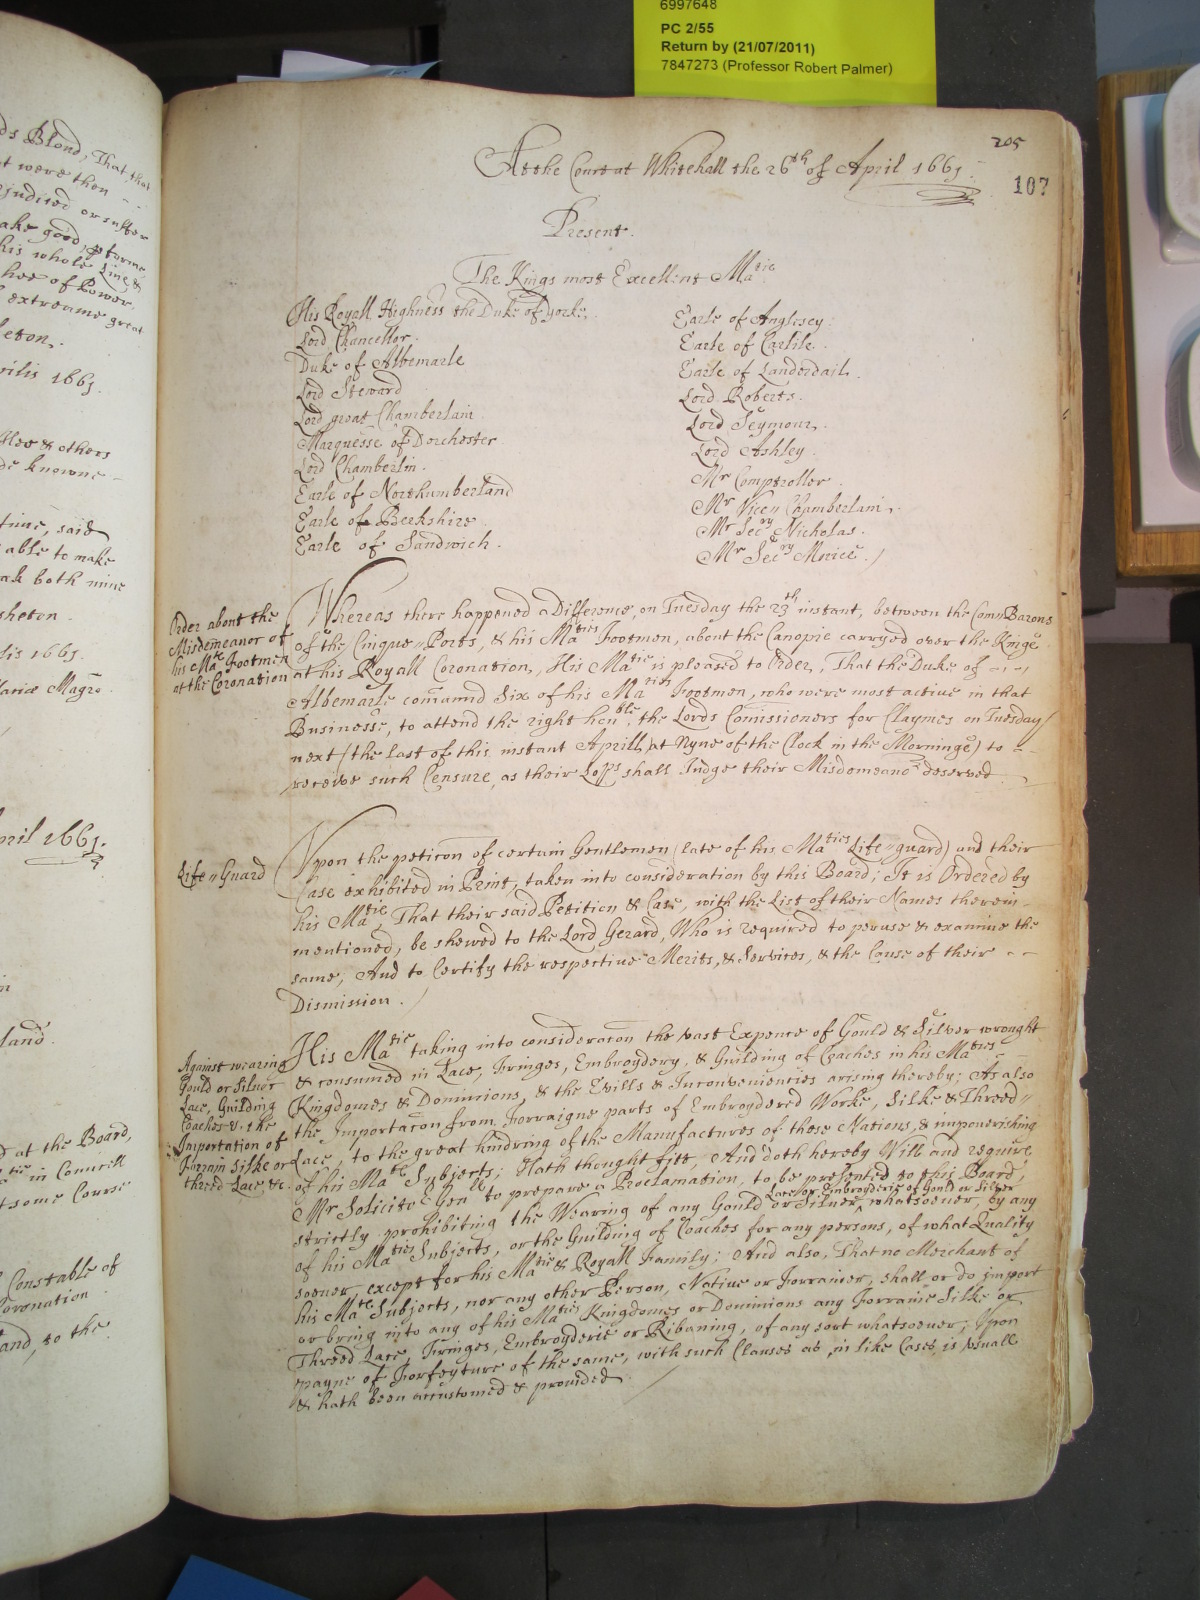 6997648
PC 2/55
Return by (21/07/2011)
7847273 (Professor Robert Palmer)
ds Blond, That, that
t were then
judised or suffer
ake good, & forme
his whole Line &
hee of Power,
extreame great
leton.
rilis 1661.
Alex & others
de knowne
time, said
able to make
ak both mine
sheton
lis 1661.
pril 1661.
land.
d at the Board,
tie in Councell
t some Course
Constable of
oronation
and, to the
205
107
At the Court at Whitehall the 26th of April 1661.
Present.
The Kings most Excellent Matie
His Royall Highness the Duke of Yorke.
Lord Chancellor.
Duke of Albemarle
Lord Steward
Lord great Chamberlain
Marquesse of Dorchester
Lord Chamberlin.
Earle of Northumberland
Earle of Berkshire.
Earle of Sandwich.
Earle of Anglesey.
Earle of Carlile.
Earle of Lauderdail.
Lord Roberts.
Lord Seymour.
Lord Ashley.
Mr Comptroller.
Mr Vice Chamberlain.
Mr Secry Nicholas.
Mr Secry Morice.
Order about the
Misdemeanor of
his Mats Footmen
at the Coronation
Whereas there happened a Difference, on Tuesday the 23th instant, between the Barons
of the Cinque Ports, & his Maties Footmen, about the Canopie carryed over the Kinge
at his Royall Coronation, His Matie is pleased to Order, That the Duke of
Albemarle comannd Six of his Maties Footmen, who were most active in that
Businesse, to attend the right honble, the Lords Comissioners for Claymes on Tuesday
next (the last of this instant Aprill, at Nyne of the Clock in the Morninge) to
receive such Censure, as their Lops shall Judge their Misdomeanor deserved
Life Guard
Vpon the peticon of certain Gentlemen (late of his Maties Life guard) and their
Case exhibited in Print, taken into consideration by this Board; It is Ordered by
his Matie, That their said Petition & Case, with the List of their Names therein
mentioned, be shewed to the Lord Gerard, Who is required to peruse & examine the
same, And to Certify the respective Merits, & Services, & the Cause of their
Dismission.
Against wearing
Gould or Silver
Lace, Guilding
Coaches & the
Importation of
Forrain Silke or
threed Lace, &c.
His Matie taking into consideracon the vast Expence of Gould & Silver wrought
& consumed in Lace, Fringes, Embroydery, & Guilding of Coaches in his Maties
Kingdomes & Dominions, & the Evills & Inconveniencies arising thereby; As also
the Importacon from Forraigne parts of Embroydered Worke, Silke & Threed
Lace, to the great hindring of the Manufactures of these Nations, & impoverishing
of his Mats Subjects; Hath thought fitt, And doth hereby Will and require
Mr Solicitor Genll to prepare a Proclamation, to be presented to this Board,
strictly prohibiting the Wearing of any Gould or Silver Lace, or Embroyderie of Gould or Silver whatsoever, by any
of his Maties Subjects, or the Guilding of Coaches for any persons, of what Quality
soever, except for his Matie & Royall Family; And also, That no Merchant of
his Mats Subjects, nor any other Person, Native or Forrainer, shall or do import
or bring into any of his Maties Kingdomes or Dominions any Forraine Silke or
Threed Lace, Fringes, Embroyderie or Ribaning, of any sort whatsoever; Vpon
payne of Forfeyture of the same, with such Clauses as in like Cases is vsuall
& hath been accustomed & provided